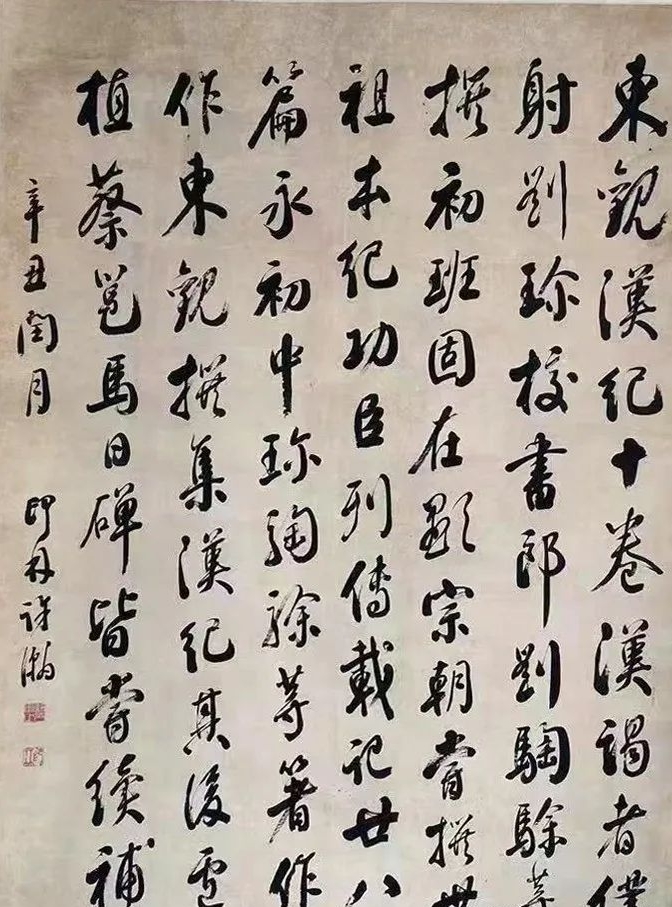 東觀漢紀十卷漢謁者僕
射劉珍校書郎劉騊駼等
撰初班固在顯宗朝嘗撰世
祖本紀功臣列傳載記廿八
篇永初中珍騊駼等著作
作東觀撰集漢紀其後盧
植蔡邕馬日磾皆嘗續補
辛丑閏月 印林許瀚